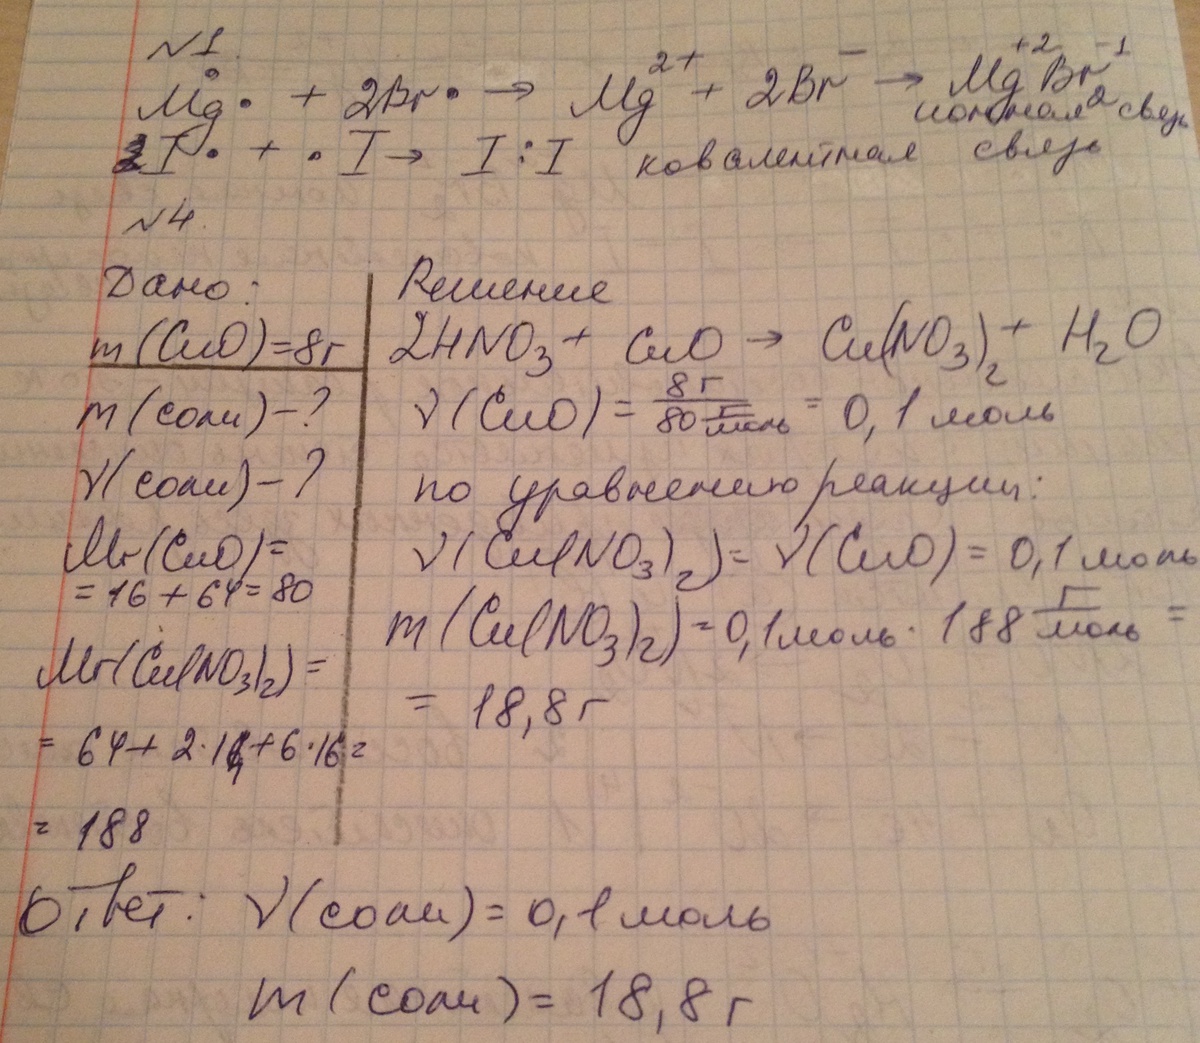 №1.
Mg: + 2Br· → Mg²⁺ + 2Br⁻ → Mg⁺²Br₂⁻¹
ионная связь
I· + ·I → I:I ковалентная связь
№4.
Дано:
m(CuO)=8г
m(соли)-?
ν(соли)-?
Mr(CuO)=
=16+64=80
Mr(Cu(NO₃)₂)=
= 64+2·14+6·16=
= 188
Решение
2HNO₃ + CuO → Cu(NO₃)₂ + H₂O
ν(CuO) = 8г / 80 г/моль = 0,1 моль
по уравнению реакции:
ν(Cu(NO₃)₂) = ν(CuO) = 0,1 моль
m(Cu(NO₃)₂) = 0,1 моль · 188 г/моль =
= 18,8 г
Ответ: ν(соли) = 0,1 моль
m(соли) = 18,8 г